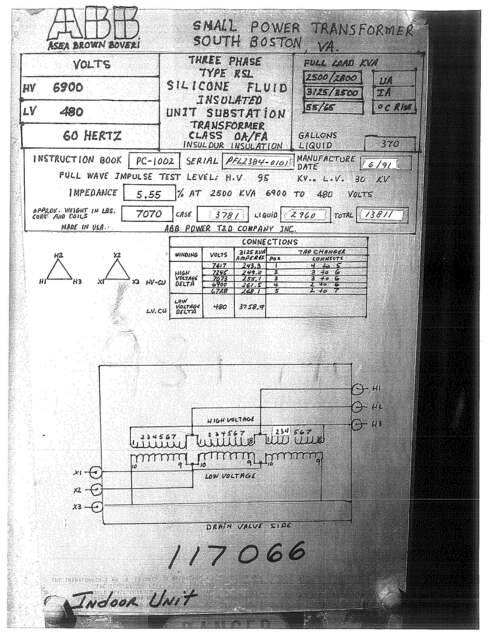 ABB
ASEA BROWN BOVERI
SMALL POWER TRANSFORMER
SOUTH BOSTON, VA.
VOLTS
HV 6900
LV 480
60 HERTZ
THREE PHASE
TYPE RSL
SILICONE FLUID
INSULATED
UNIT SUBSTATION
TRANSFORMER
CLASS OA/FA
INSULDUR INSULATION
FULL LOAD KVA
2500/2800
3125/3500
55/65 °C RISE
GALLONS
LIQUID 370
INSTRUCTION BOOK PC-1002 SERIAL PFL2384-0101 MANUFACTURE DATE 6/91
FULL WAVE IMPULSE TEST LEVEL: H.V. 95 KV., L.V. 30 KV
IMPEDANCE 5.55 % AT 2500 KVA 6900 TO 480 VOLTS
APPROX. WEIGHT IN LBS. CORE AND COILS 7070 CASE 3781 LIQUID 2960 TOTAL 13811
MADE IN USA. ABB POWER T&D COMPANY INC.
CONNECTIONS
WINDING VOLTS 3125 KVA AMPERES TAP CHANGER
POS CONNECTS
HIGH VOLTAGE DELTA
7245 249.0 2 3 to 5
7073 255.1 3 3 to 6
6900 261.5 4 2 to 6
6728 268.1 5 2 to 7
LOW VOLTAGE DELTA 480 3758.9
H2 X2
H1 H3 X1 X3 HV-CU
LV.CU
H1
H2
H3
HIGH VOLTAGE
234567 234567 234 567
10 9 10 9 10 9
X1
LOW VOLTAGE
X2
X3
DRAIN VALVE SIDE
117066
INDOOR UNIT
DANGER